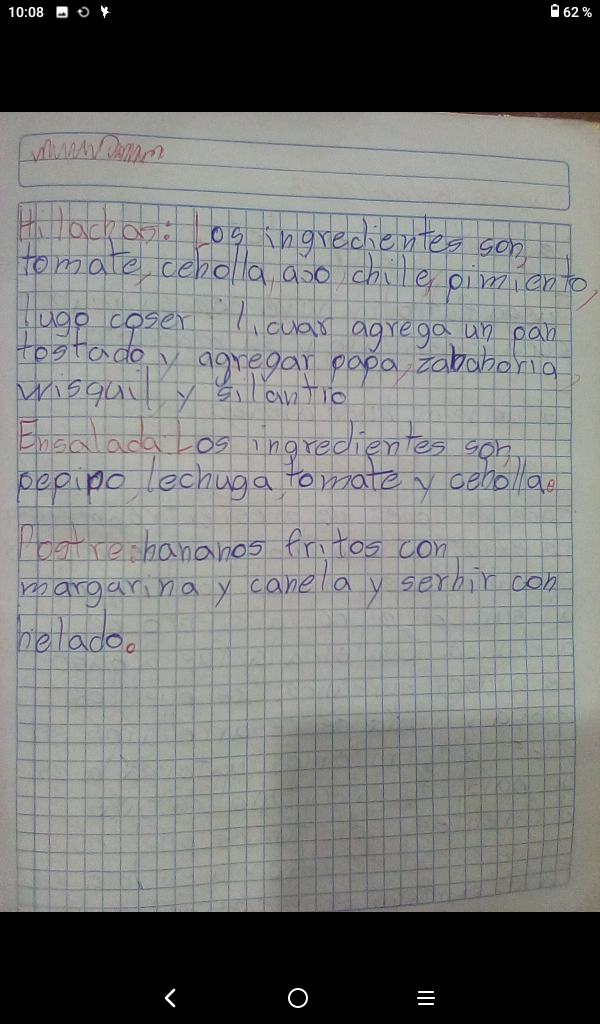 10:08
62 %
Hilachas: Los ingredientes son,
tomate, cebolla, aoo, chile, pimiento,
lugo coser l, cuar agrega un pan
tostado y agregar papa, zabahoria,
wisquil, y silantro
Ensalada Los ingredientes son,
pepipo, lechuga, tomate y cebolla.
Postre: bananos fritos con
margarina y canela y serbir con
helado.